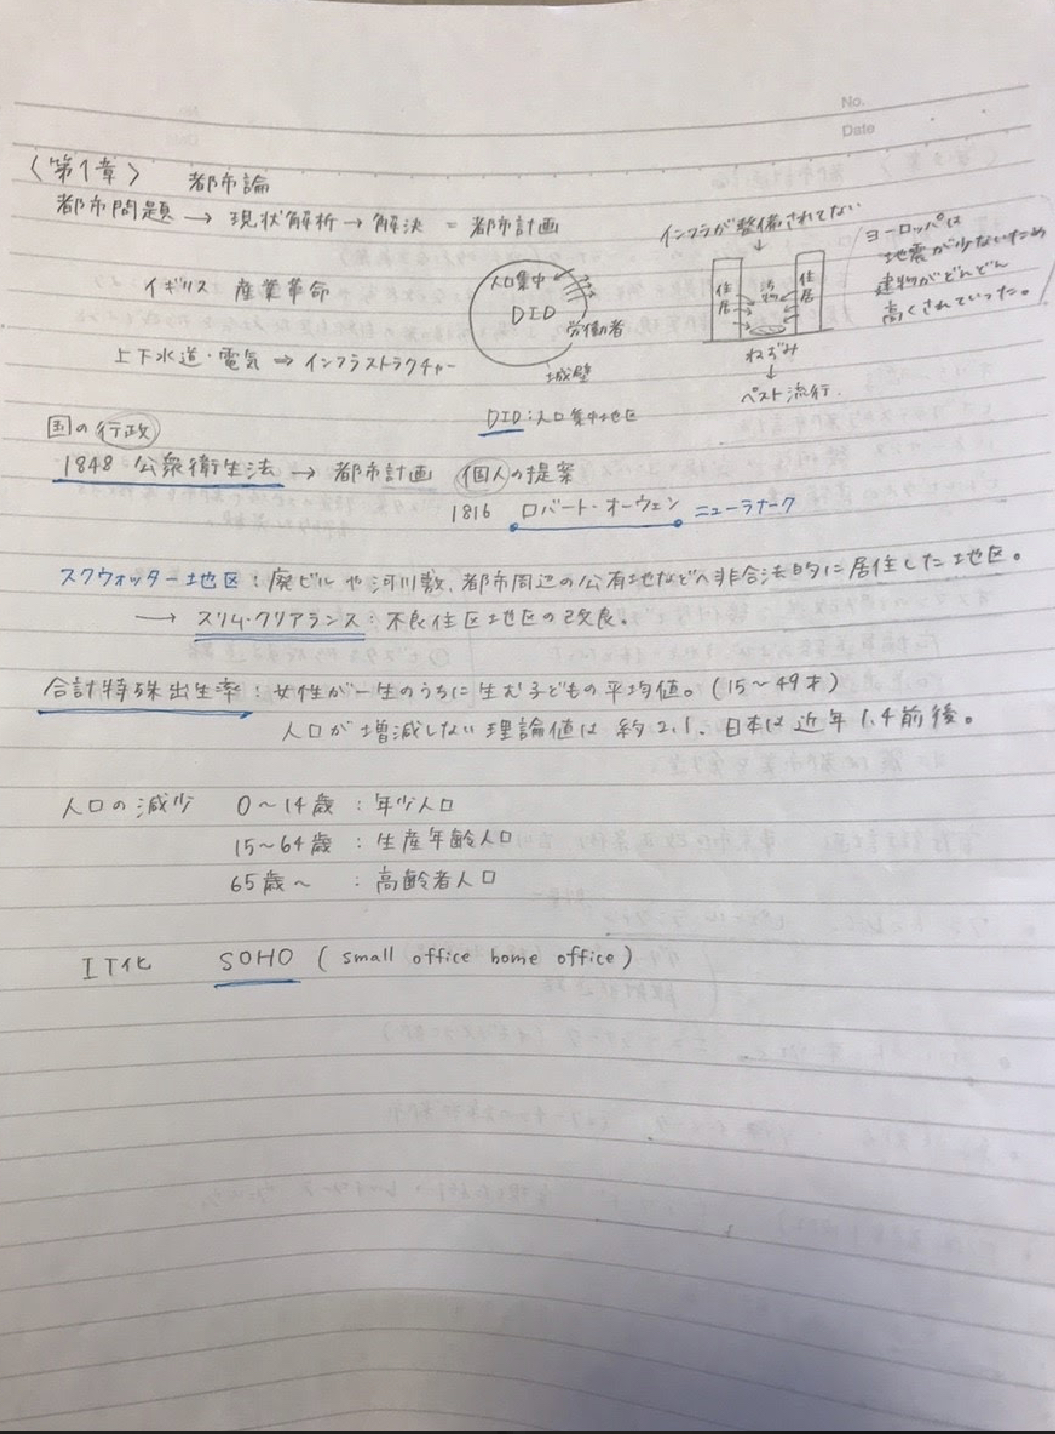 No.
Date
〈第1章〉 都市論
都市問題 → 現状解析 → 解決 = 都市計画
イギリス 産業革命
上下水道・電気 ⇒ インフラストラクチャー
人口集中
DID
労働者
城壁
DID：人口集中地区
インフラが整備されてない
↓
住居
住居
ねずみ
↓
ペスト流行
ヨーロッパは
地震が少ないため
建物がどんどん
高くされていった。
国の行政
1848 公衆衛生法 → 都市計画 個人の提案
1816 ロバート・オーウェン ニューラナーク
スクウォッター地区：廃ビルや河川敷、都市周辺の公有地などへ非合法的に居住した地区。
→ スリム・クリアランス：不良住区地区の改良。
合計特殊出生率：女性が一生のうちに生む子どもの平均値。(15～49才)
人口が増減しない理論値は約2.1、日本は近年1.4前後。
人口の減少 0～14歳：年少人口
15～64歳：生産年齢人口
65歳～：高齢者人口
IT化 SOHO (small office home office)